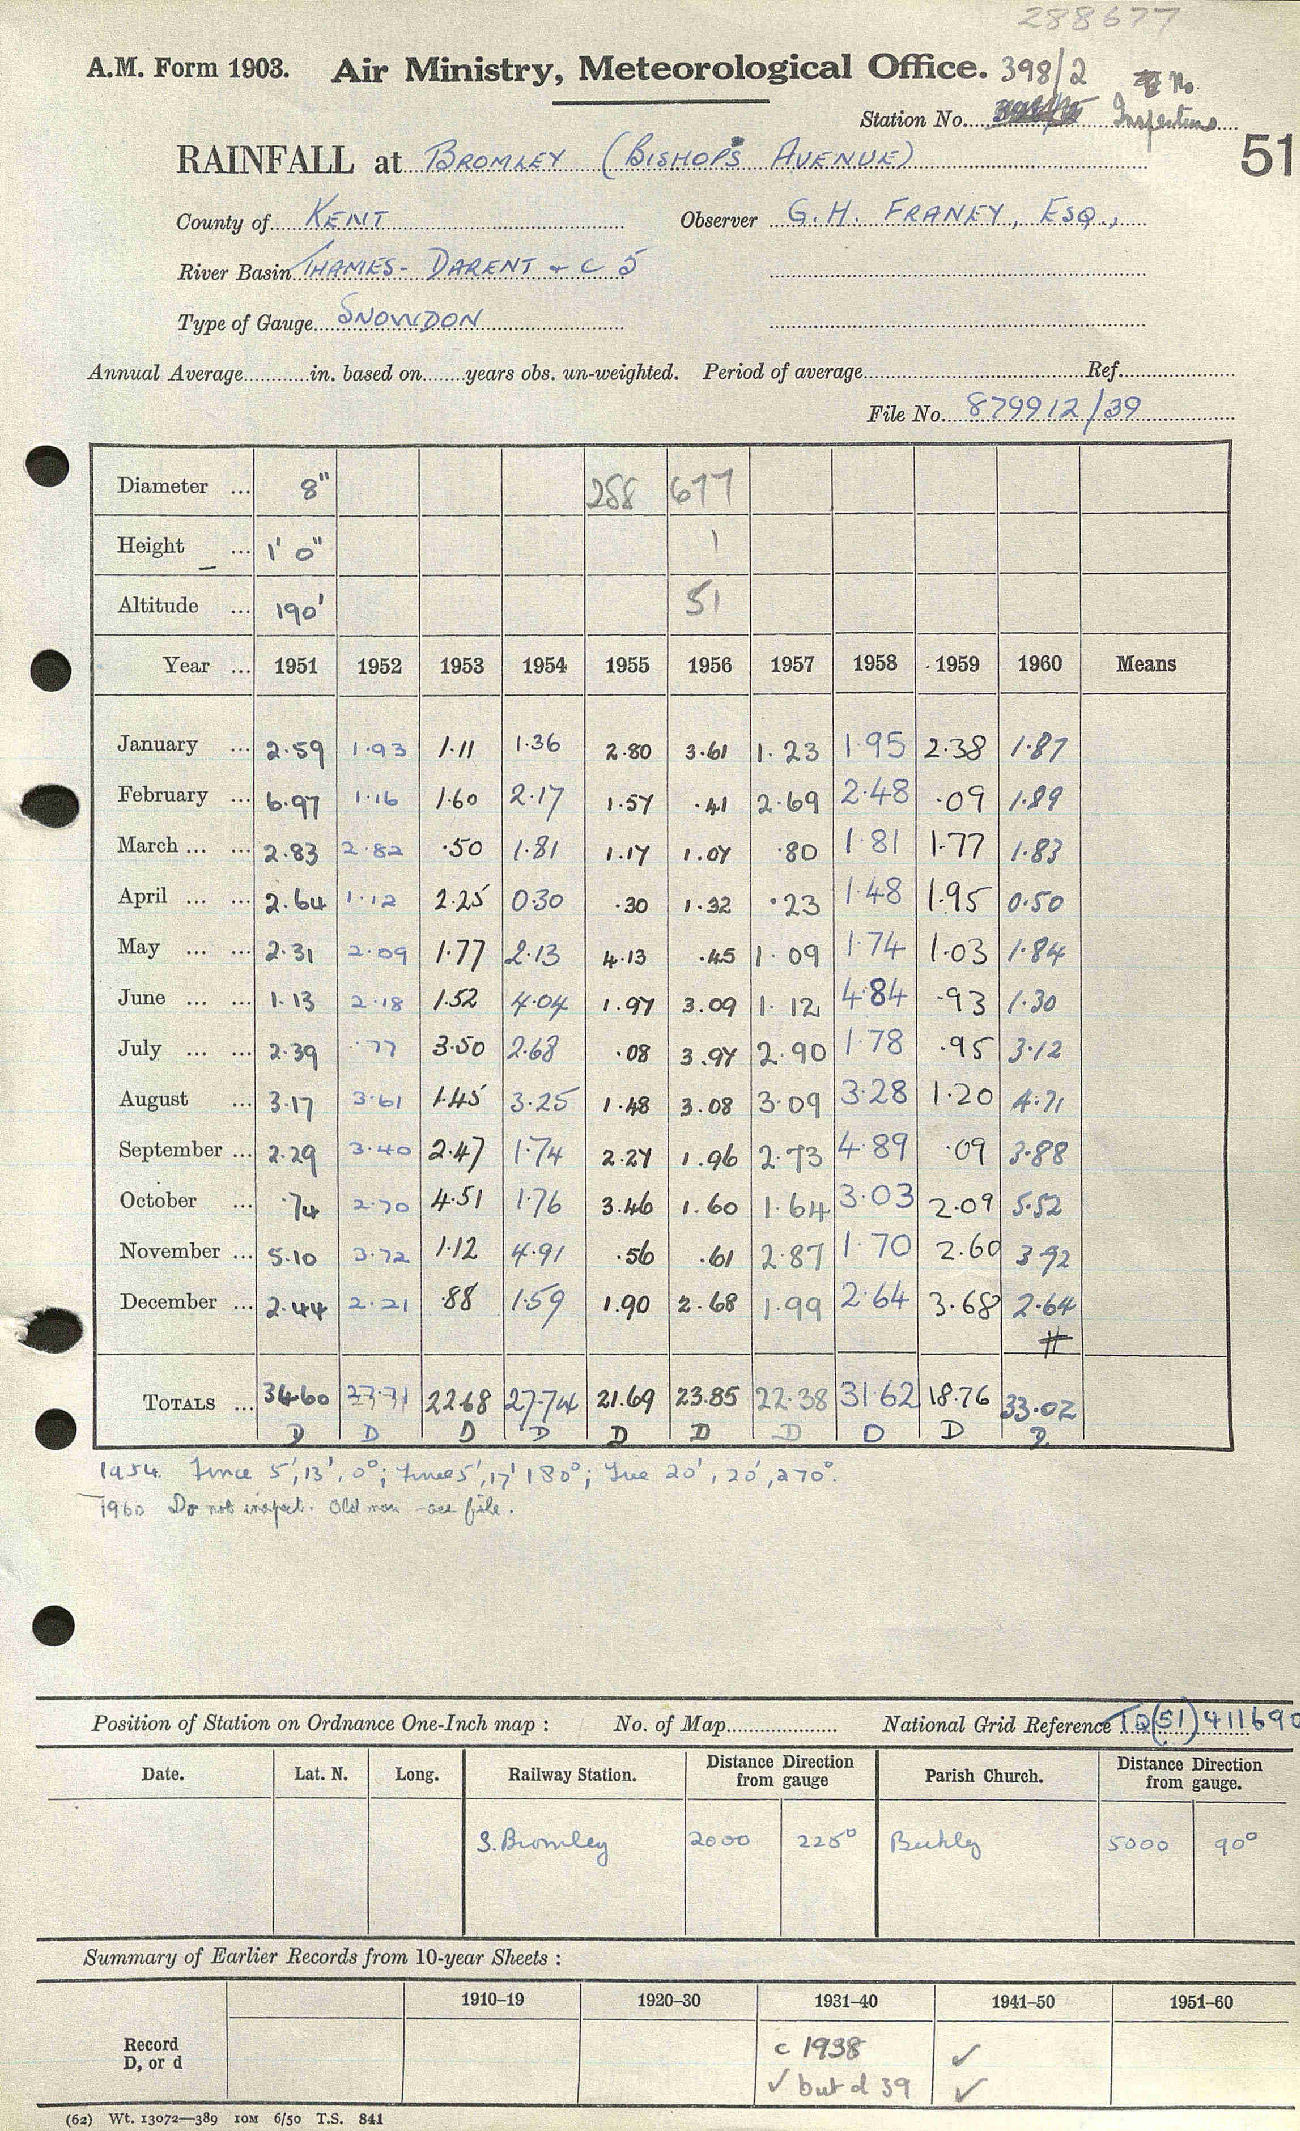 288677
A.M. Form 1903. Air Ministry, Meteorological Office. 398/2
Station No. No Inspections
51
RAINFALL at BROMLEY (BISHOP'S AVENUE)
County of KENT Observer G.H. FRANEY, ESQ.,
River Basin THAMES - DARENT & C 5
Type of Gauge SNOWDON
Annual Average in. based on years obs. un-weighted. Period of average Ref.
File No. 879912/39
Diameter ... 8" 288 677
Height ... 1' 0" 1
Altitude ... 190' 51
Year ... 1951 1952 1953 1954 1955 1956 1957 1958 1959 1960 Means
January ... 2.59 1.93 1.11 1.36 2.80 3.61 1.23 1.95 2.38 1.87
February ... 6.97 1.16 1.60 2.17 1.57 .41 2.69 2.48 .09 1.89
March ... ... 2.83 2.82 .50 1.81 1.17 1.07 .80 1.81 1.77 1.83
April ... ... 2.64 1.12 2.25 0.30 .30 1.32 .23 1.48 1.95 0.50
May ... ... 2.31 2.09 1.77 2.13 4.13 .45 1.09 1.74 1.03 1.84
June ... ... 1.13 2.18 1.52 4.04 1.97 3.09 1.12 4.84 .93 1.30
July ... ... 2.39 .77 3.50 2.68 .08 3.97 2.90 1.78 .95 3.12
August ... 3.17 3.61 1.45 3.25 1.48 3.08 3.09 3.28 1.20 4.71
September ... 2.29 3.40 2.47 1.74 2.27 1.96 2.73 4.89 .09 3.88
October ... .74 2.70 4.51 1.76 3.46 1.60 1.64 3.03 2.09 5.52
November ... 5.10 3.72 1.12 4.91 .56 .61 2.87 1.70 2.60 3.92
December ... 2.44 2.21 .88 1.59 1.90 2.68 1.99 2.64 3.68 2.64
#
TOTALS ... 34.60 27.71 22.68 27.74 21.69 23.85 22.38 31.62 18.76 33.02
D D D D D D D D D D
1954. Fence 5', 13', 0°; Fence 5', 17' 180°; Tree 20', 20', 270°.
1960 Do not inspect. Old man - see file.
Position of Station on Ordnance One-Inch map : No. of Map National Grid Reference TQ(51)411690
Date. Lat. N. Long. Railway Station. Distance from gauge Direction Parish Church. Distance from gauge. Direction
S. Bromley 2000 225° 5000 90°
Summary of Earlier Records from 10-year Sheets :
1910–19 1920–30 1931–40 1941–50 1951–60
Record c 1938 ✓
D, or d ✓ but d 39 ✓
(62) Wt. 13072—389 10M 6/50 T.S. 841